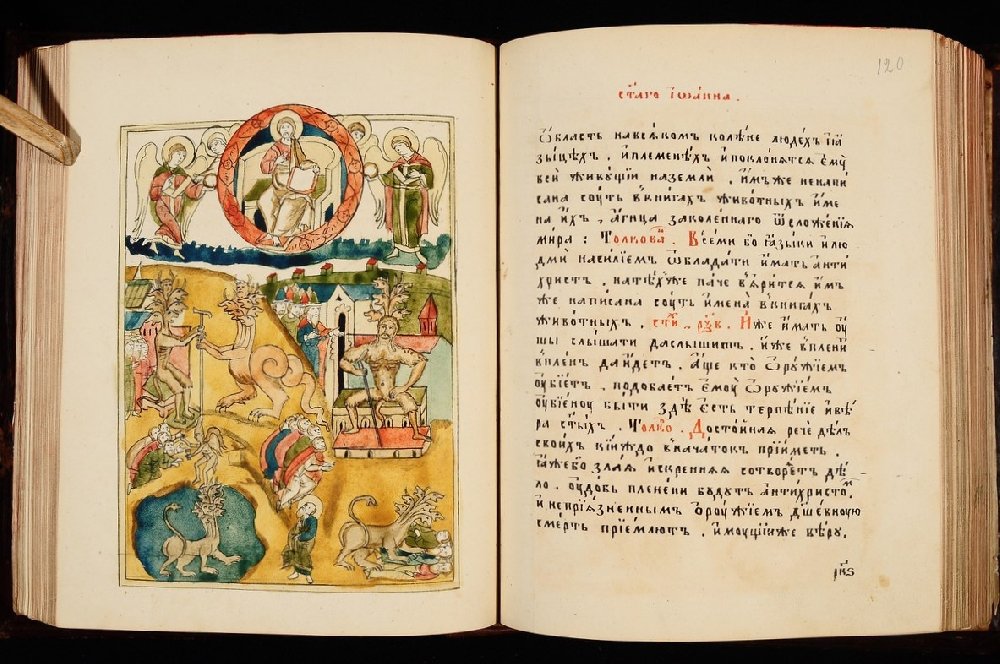 120
ст҃аго іѡа́нна .
ѡ҆́бласть на всѧ́комъ колѣ́не люде́хъ и҆ ꙗ҆
зы́цѣхъ , и҆ племене́хъ и҆ покло́нѧтсѧ є҆мꙋ̀
всѝ живꙋ́щїи на землѝ , и҆́мъже не напи́
сана сꙋ́ть в кни́гахъ живо́тныхъ и҆ме
на̀ и҆́хъ , а҆́гнца заколе́ннаго ѿ сложе́нїѧ
ми́ра : Толкова́ . Всѣ́ми бо ꙗ҆зы́ки и҆ лю
дмѝ наси́лїемъ ѡ҆блада́ти и҆́мать а҆нти́
христъ , на тѣ́хже па́че въѧ́ритсѧ и҆́м
же напи́сана сꙋ́ть и҆мена̀ в кни́гахъ
живо́тныхъ . И҆́же и҆́мать ᲂу҆́
шы слы́шати да слы́шитъ , и҆́же в плѣ́нъ
в плѣ́нъ да и҆́детъ . А҆́ще кто̀ ѻ҆рꙋ́жїемъ
ᲂу҆бїе́тъ , подоба́етъ є҆мꙋ̀ ѻ҆рꙋ́жїемъ
ᲂу҆бїе́нꙋ бы́ти здѣ̀ є҆́сть терпѣ́нїе и҆ вѣ́
ра ст҃ы́хъ . Толко́ . Досто́йнаѧ речѐ дѣ́лъ
свои́хъ кі́йждо в нача́токъ прїи́метъ ,
ꙗ҆́же бо зла́ѧ и҆́скреннѧѧ сотвори́тъ дѣ́
ло . ᲂу҆до́бь плене́ни бꙋ́дꙋтъ а҆нти́христом ,
и҆ непрїѧ́зненнымъ ѻ҆рꙋ́жїемъ дш҃е́внꙋю
сме́рть прїе́млютъ , и҆мꙋ́щїи же вѣ́рꙋ .
рк҃ѕ